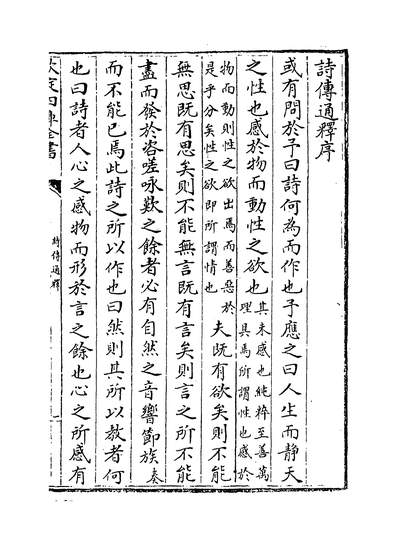 詩傳通釋序
或有問於予曰詩何為而作也予應之曰人生而静天
之性也感於物而動性之欲也其未感也純粹至善萬理具焉所謂性也感於
物而動則性之欲出焉而善惡於是乎分矣性之欲即所謂情也夫既有欲矣則不能
無思既有思矣則不能無言既有言矣則言之所不能
盡而發於咨嗟咏歎之餘者必有自然之音響節族奏
而不能已焉此詩之所以作也曰然則其所以教者何
也曰詩者人心之感物而形於言之餘也心之所感有
欽定四庫全書
詩傳通釋